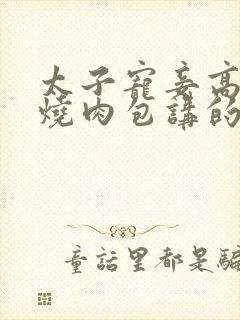 太子寵妾高
燒肉包講的
童話里都是騙